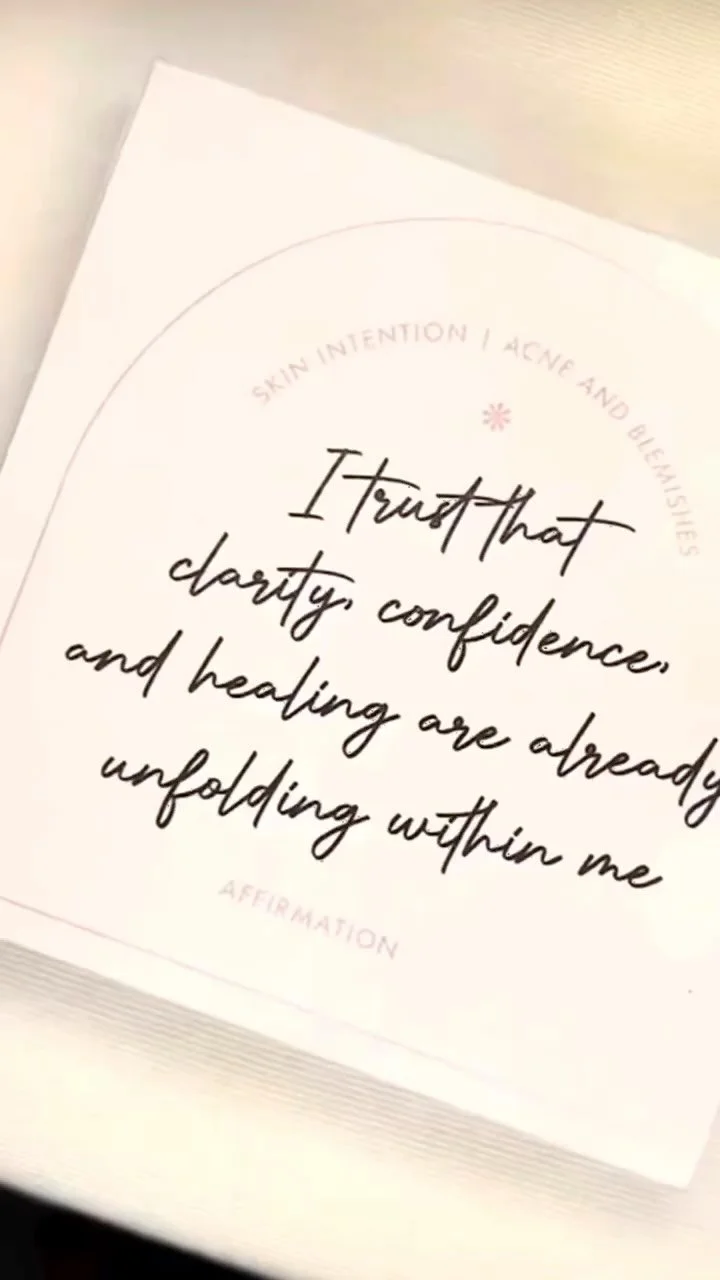 SKIN INTENTION | ACNE AND BLEMISHES
I trust that
clarity, confidence,
and healing are already
unfolding within me
AFFIRMATION